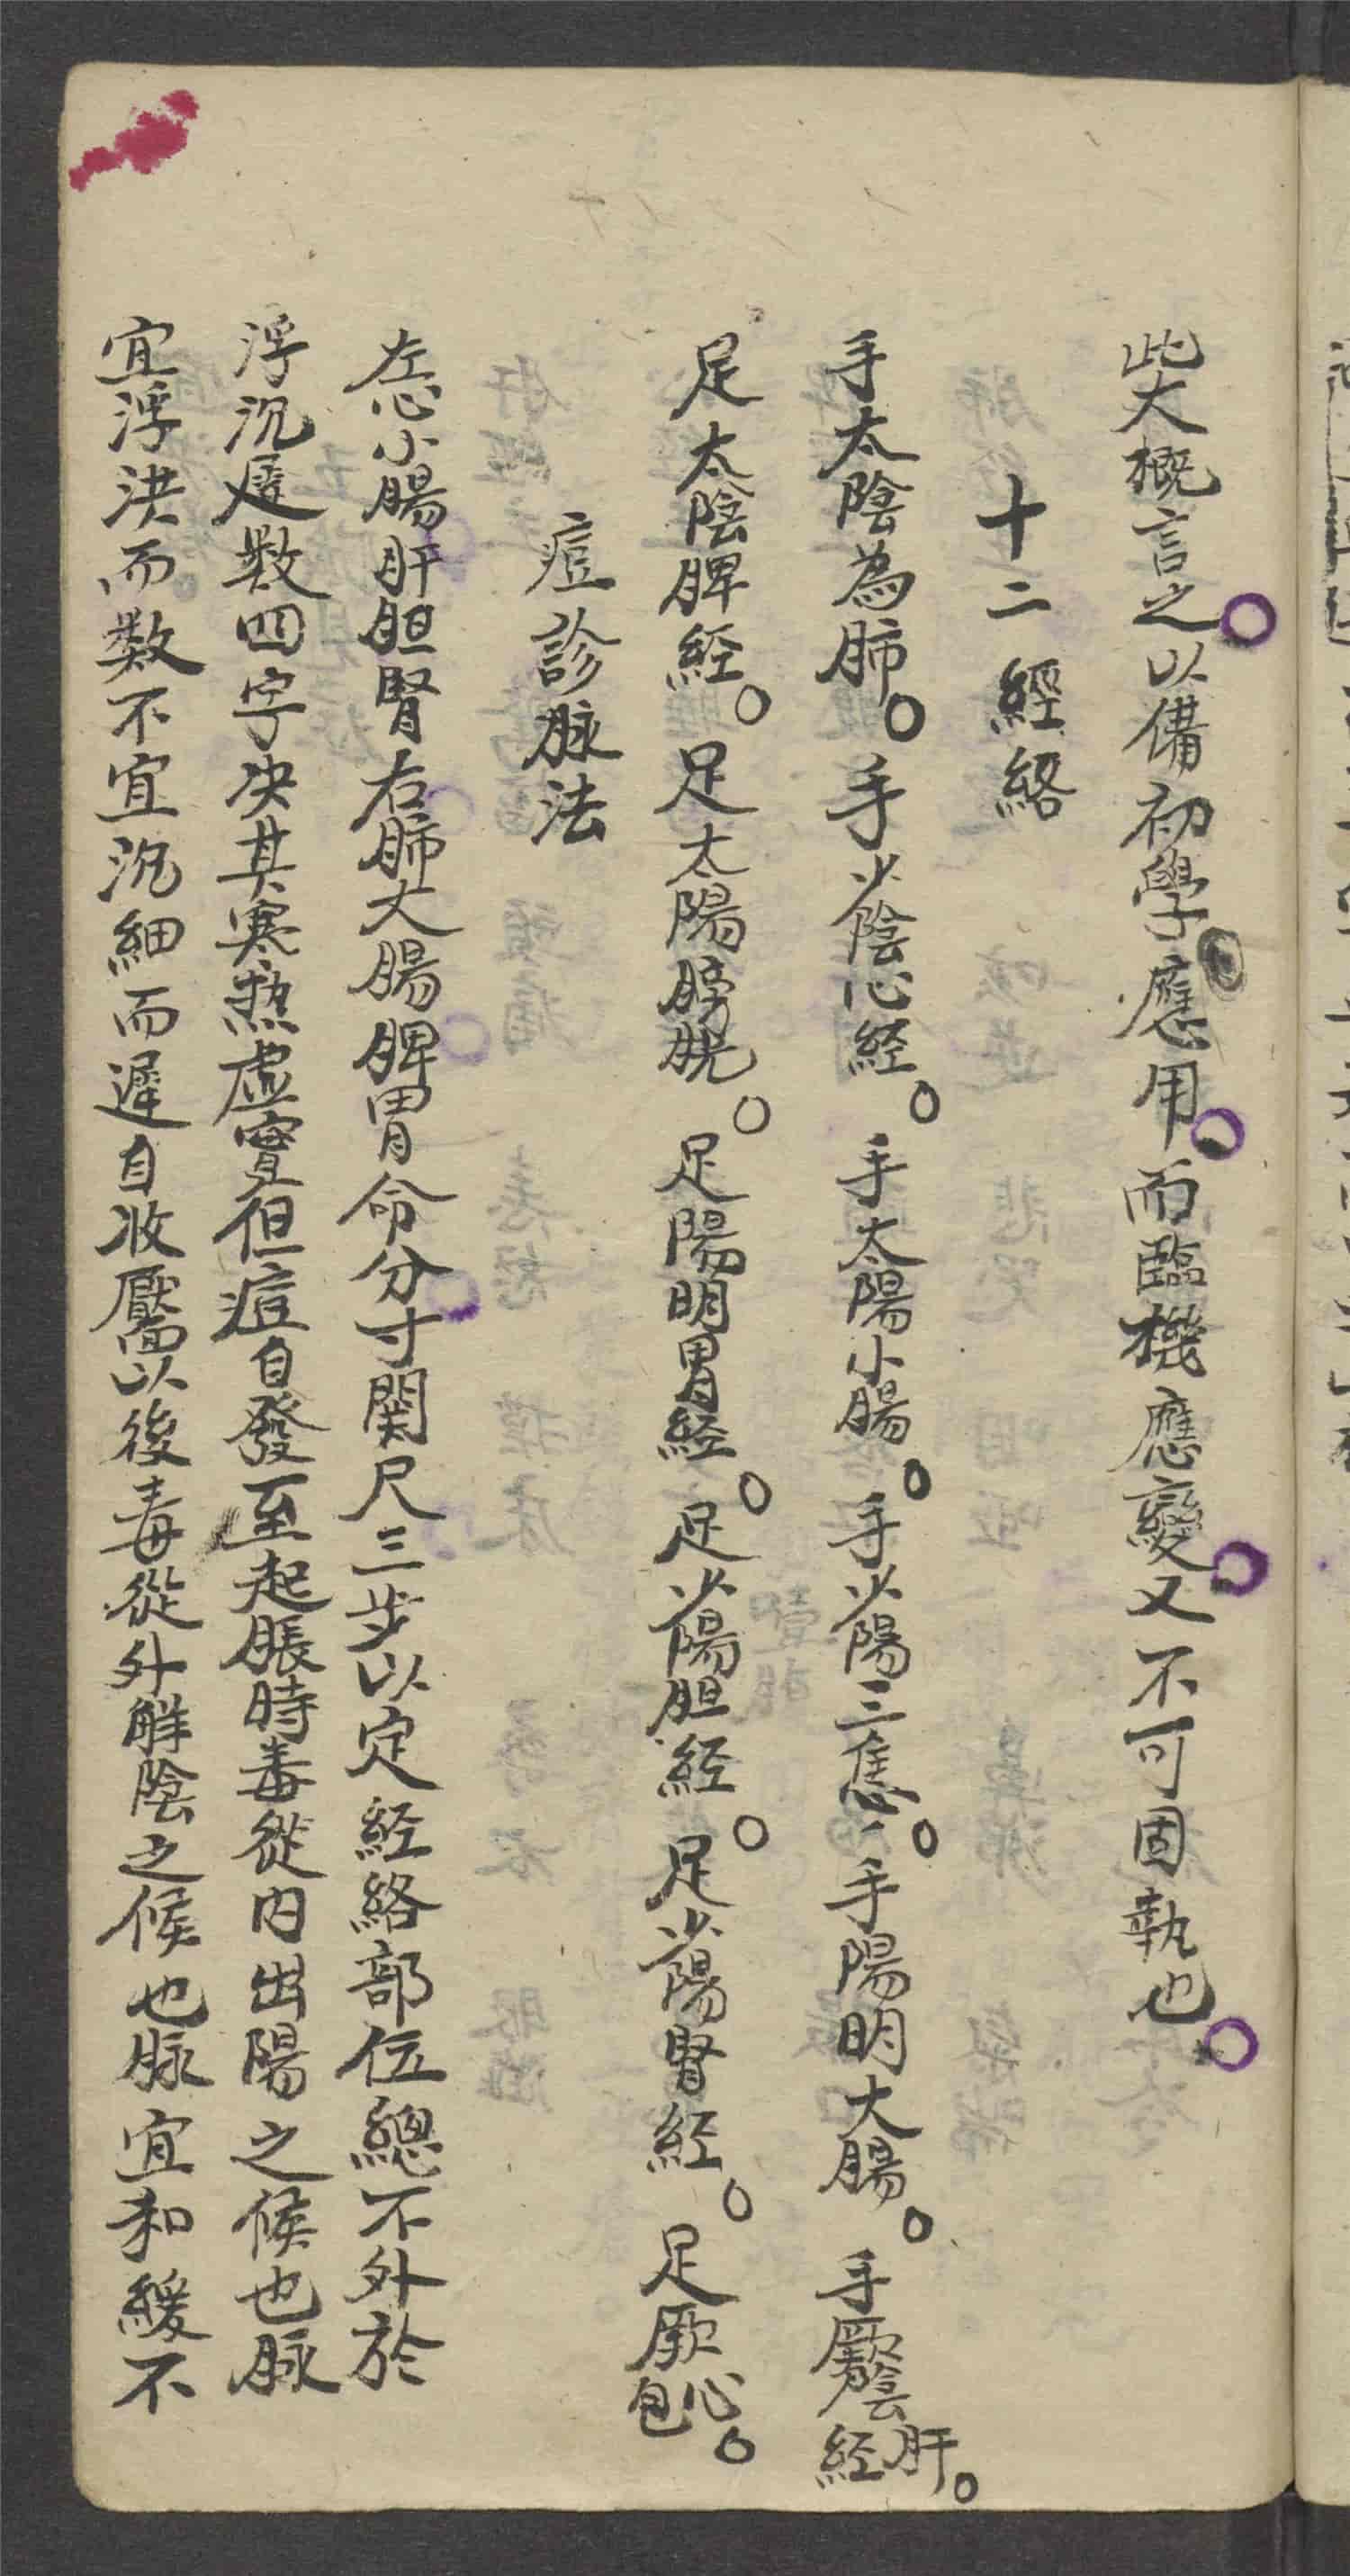 此大概言之。以備初學應用。而臨機應變。又不可固執也。
十二經絡
手太陰為肺。手少陰心経。手太陽小腸。手少陽三焦。手陽明大腸。手厥陰肝経。
足太陰脾経。足太陽膀胱。足陽明胃経。足少陽胆経。足少陽腎経。足厥心包。
痘診脉法
左心小腸肝胆腎右肺大腸脾胃命分寸関尺三步以定経絡部位總不外於
浮沉遲数四字决其寒热虚實但痘自發至起脹時毒從内出陽之候也脉
宜浮洪而数不宜沉細而遲自收靨以後毒從外解陰之候也脉宜和緩不